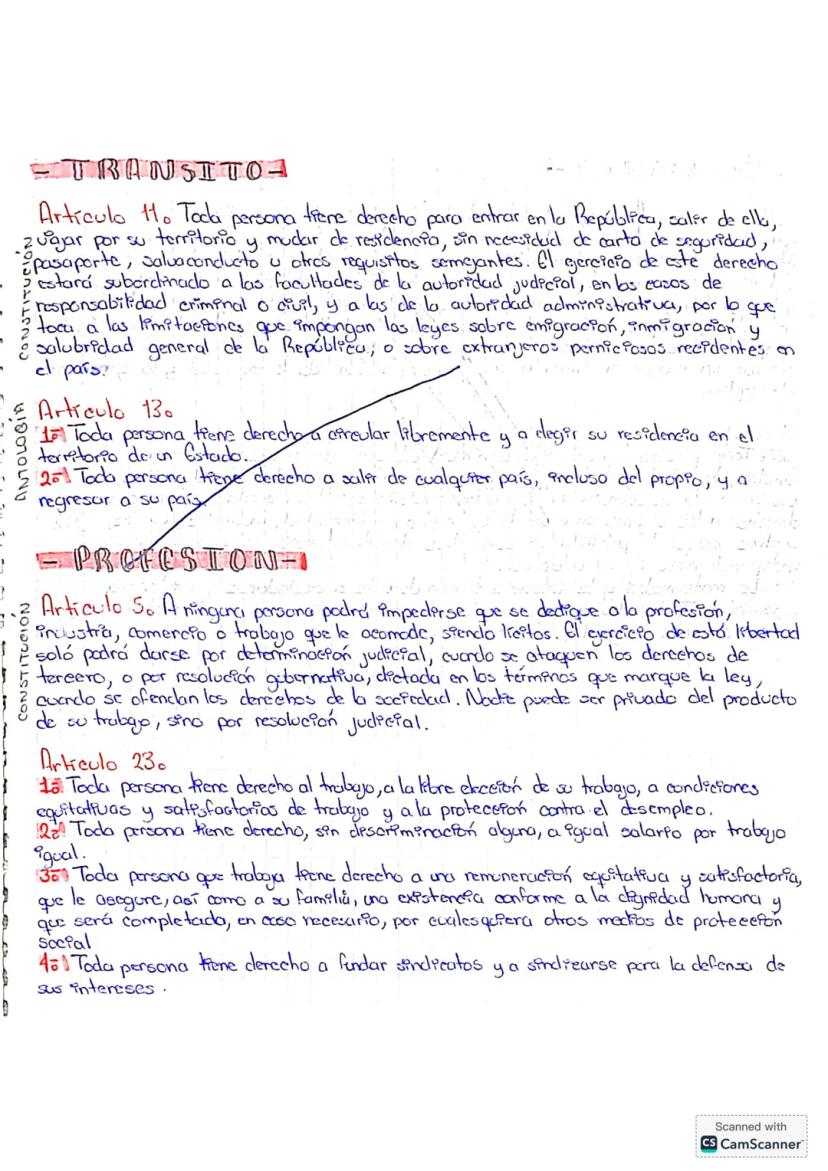 - TRANSITO -
Artículo 11. Toda persona tiene derecho para entrar en la República, salir de ella,
viajar por su territorio y mudar de residencia, sin necesidad de carta de seguridad,
pasaporte, salvaconducto u otros requisitos semejantes. El ejercicio de este derecho
estará subordinado a las facultades de la autoridad judicial, en los casos de
responsabilidad criminal o civil, y a las de la autoridad administrativa, por lo que
toca a las limitaciones que impongan las leyes sobre emigración, inmigración y
salubridad general de la República, o sobre extranjeros perniciosos recidentes en
el país.
CONSTITUCIÓN
Artículo 13.
1º Toda persona tiene derecho a circular libremente y a elegir su residencia en el
territorio de un Estado.
2º Toda persona tiene derecho a salir de cualquier país, incluso del propio, y a
regresar a su país
ANTOLOGÍA
- PROFESION -
Artículo 5. A ninguna persona podrá impederse que se dedique a la profesión,
industria, comercio o trabajo que le acomode, siendo lícitos. El ejercicio de está libertad
soló podrá darse por determinación judicial, cuando se ataquen los derechos de
tercero, o por resolución gubernativa, dictada en los términos que marque la ley,
cuando se ofendan los derechos de la sociedad. Nadie puede ser privado del producto
de su trabajo, sino por resolución judicial.
CONSTITUCIÓN
Artículo 23.
1º Toda persona tiene derecho al trabajo, a la libre elección de su trabajo, a condiciones
equitativas y satisfactorias de trabajo y a la protección contra el desempleo.
2º Toda persona tiene derecho, sin descriminación alguna, a igual salario por trabajo
igual.
3º Toda persona que trabaja tiene derecho a una remuneración equitativa y satisfactoria,
que le asegure, así como a su familia, una existencia conforme a la dignidad humana y
que será completada, en caso necesario, por cualesquiera otros medios de protección
social
4º Toda persona tiene derecho a fundar sindicatos y a sindicarse para la defensa de
sus intereses.
Scanned with
CS CamScanner